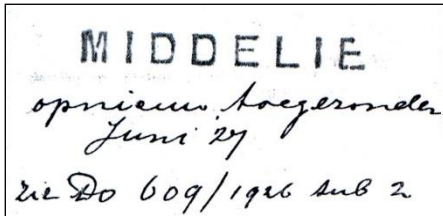 MIDDELIE
opnieuw toegezonden
Juni 27
zie Do 609/1926 sub 2